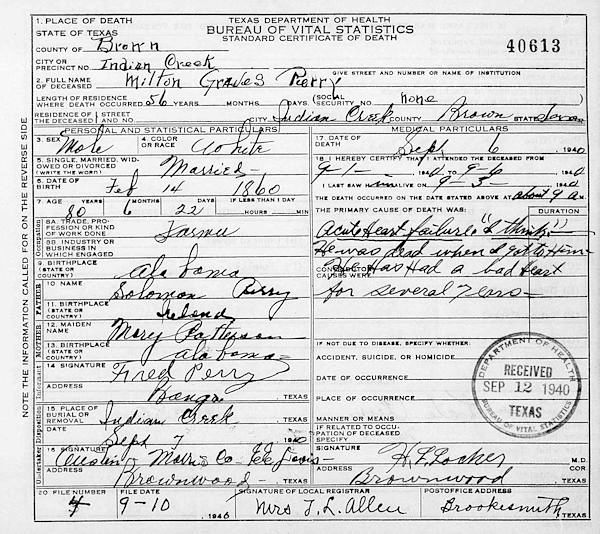 1. PLACE OF DEATH
STATE OF TEXAS
TEXAS DEPARTMENT OF HEALTH
BUREAU OF VITAL STATISTICS
STANDARD CERTIFICATE OF DEATH
40613
COUNTY OF Brown
CITY OR PRECINCT NO. Indian Creek
GIVE STREET AND NUMBER OR NAME OF INSTITUTION
2. FULL NAME OF DECEASED Milton Graves Perry
LENGTH OF RESIDENCE WHERE DEATH OCCURRED 56 YEARS MONTHS DAYS (SOCIAL SECURITY NO. none
RESIDENCE OF THE DECEASED STREET AND NO. CITY Indian Creek COUNTY Brown STATE Texas
PERSONAL AND STATISTICAL PARTICULARS
3. SEX Male 4. COLOR OR RACE White
5. SINGLE, MARRIED, WIDOWED OR DIVORCED (WRITE THE WORD) Married
6. DATE OF BIRTH Feb 14 1860
7. AGE YEARS MONTHS DAYS IF LESS THAN 1 DAY
80 6 22 HOURS MIN
OCCUPATION
8A. TRADE, PROFESSION OR KIND OF WORK DONE Farmer
8B. INDUSTRY OR BUSINESS IN WHICH ENGAGED
9. BIRTHPLACE (STATE OR COUNTRY) Alabama
FATHER
10 NAME Solomon Perry
11. BIRTHPLACE (STATE OR COUNTRY) Ireland
MOTHER
12. MAIDEN NAME Mary Patterson
13. BIRTHPLACE (STATE OR COUNTRY) Alabama
Informant
14 SIGNATURE Fred Perry
ADDRESS Bangs TEXAS
Disposition
15. PLACE OF BURIAL OR REMOVAL Indian Creek TEXAS
DATE Sept 7 1940
Undertaker
16 SIGNATURE Austin-Morris Co
ADDRESS Brownwood TEXAS
20 FILE NUMBER FILE DATE
4 9-10 1940
MEDICAL PARTICULARS
17 DATE OF DEATH Sept 6 1940
18 I HEREBY CERTIFY THAT I ATTENDED THE DECEASED FROM
9-1- 1940 9-6 1940
I LAST SAW him ALIVE ON 9-3- 1940
THE DEATH OCCURRED ON THE DATE STATED ABOVE AT about 9 a M.
THE PRIMARY CAUSE OF DEATH WAS: DURATION
Acute Heart failure "I think"
He was dead when I got to Him
CONTRIBUTORY CAUSES WERE He Has Had a bad Heart
for several years
IF NOT DUE TO DISEASE, SPECIFY WHETHER:
ACCIDENT, SUICIDE, OR HOMICIDE
DATE OF OCCURRENCE
PLACE OF OCCURRENCE
MANNER OR MEANS
IF RELATED TO OCCUPATION OF DECEASED SPECIFY
SIGNATURE H. L. Locker M.D. COR.
ADDRESS Brownwood TEXAS
SIGNATURE OF LOCAL REGISTRAR POSTOFFICE ADDRESS
Mrs T. L. Allen Brookesmith TEXAS
DEPARTMENT OF HEALTH
RECEIVED
SEP 12 1940
TEXAS
BUREAU OF VITAL STATISTICS
NOTE THE INFORMATION CALLED FOR ON THE REVERSE SIDE